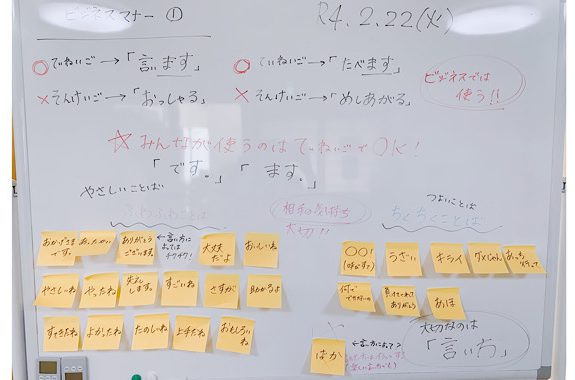 ビジネスマナー①
R4.2.22(火)
○ていねいご→「言います」
×そんけいご→「おっしゃる」
○ていねいご→「たべます」
×そんけいご→「めしあがる」
ビジネスでは
使う!!
☆みんなが使うのはていねいごでOK!
「です。」「ます。」
やさしいことば
ふわふわことば
相手の気持ち
大切!!
つよいことば
ちくちくことば
おかげさま
です。
あったかい
ありがとう
ございます。
←言い方に
よっては
チクチク!
大丈夫
だよ
おいしいね
やさしいね
やったね
失礼
します。
すごいね
さすが
助かるよ
すてきだね
よかったね
たのしいね
上手だね
おもしろい
ね
〇〇!
(呼びすて)
うざい
キライ
ダメじゃん
あっち
行って
何で
ありがとう
あほ
ばか
←言い方によって
大切なのは
「言い方」